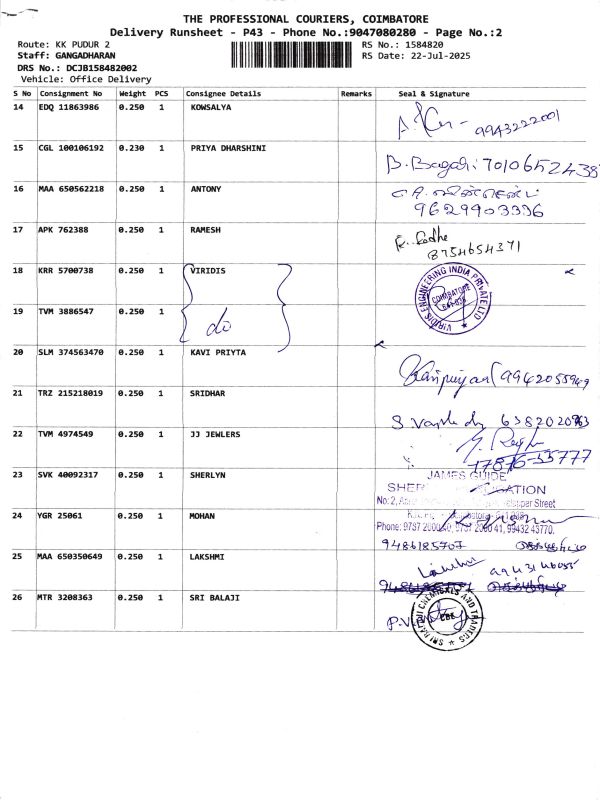 THE PROFESSIONAL COURIERS, COIMBATORE
Delivery Runsheet - P43 - Phone No.:9047080280 - Page No.:2
Route: KK PUDUR 2 RS No.: 1584820
Staff: GANGADHARAN RS Date: 22-Jul-2025
DRS No.: DCJB158482002
Vehicle: Office Delivery
S No Consignment No Weight PCS Consignee Details Remarks Seal & Signature
14 EDQ 11863986 0.250 1 KOWSALYA 9943222001
15 CGL 100106192 0.230 1 PRIYA DHARSHINI 7010652438
16 MAA 650562218 0.250 1 ANTONY
9629903396
17 APK 762388 0.250 1 RAMESH
8754654371
18 KRR 5700738 0.250 1 VIRIDIS
VIRIDIS ENGINEERING INDIA PRIVATE LTD
COIMBATORE
19 TVM 3886547 0.250 1 do
20 SLM 374563470 0.250 1 KAVI PRIYTA
9942055949
21 TRZ 215218019 0.250 1 SRIDHAR
22 TVM 4974549 0.250 1 JJ JEWLERS
23 SVK 40092317 0.250 1 SHERLYN
JAMES GUIDE
No:2,
24 YGR 25061 0.250 1 MOHAN
Phone: 9787 2000 41, 99432 43770.
9486185707
25 MAA 650350649 0.250 1 LAKSHMI
Lakshmi
26 MTR 3208363 0.250 1 SRI BALAJI
SRI BALAJI CHEMICALS AND TRADERS
CBE